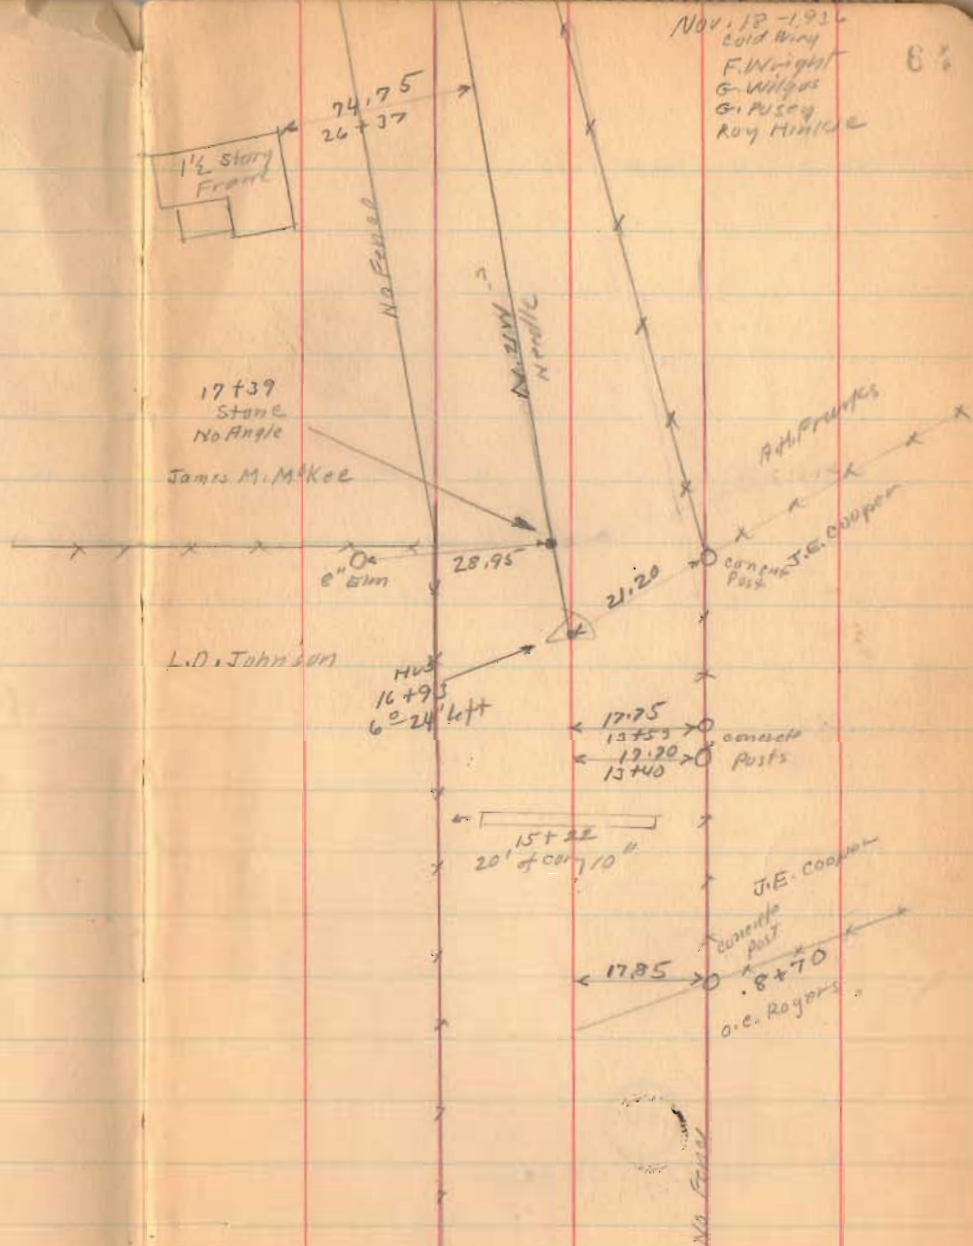 Nov. 18 - 1936
Cold Windy
F. Wright
G. Wilgus
G. Pusey
Roy Hinkle
74.75
26+37
1 1/2 Story
Frame
No Fence
N. 21 W
Needle
17+39
Stone
No Angle
James M. McKee
A.H. Franks
J.E. Cooper
8" Elm
28.95
21.20
Post
L.D. Johnson
Hub
16+93
6°-24' left
17.75
13+53
concrete
Posts
13+40
15+22
20' of 10"
J.E. Cooper
concrete
Post
17.85
8+70
O.C. Rogers
No Fence